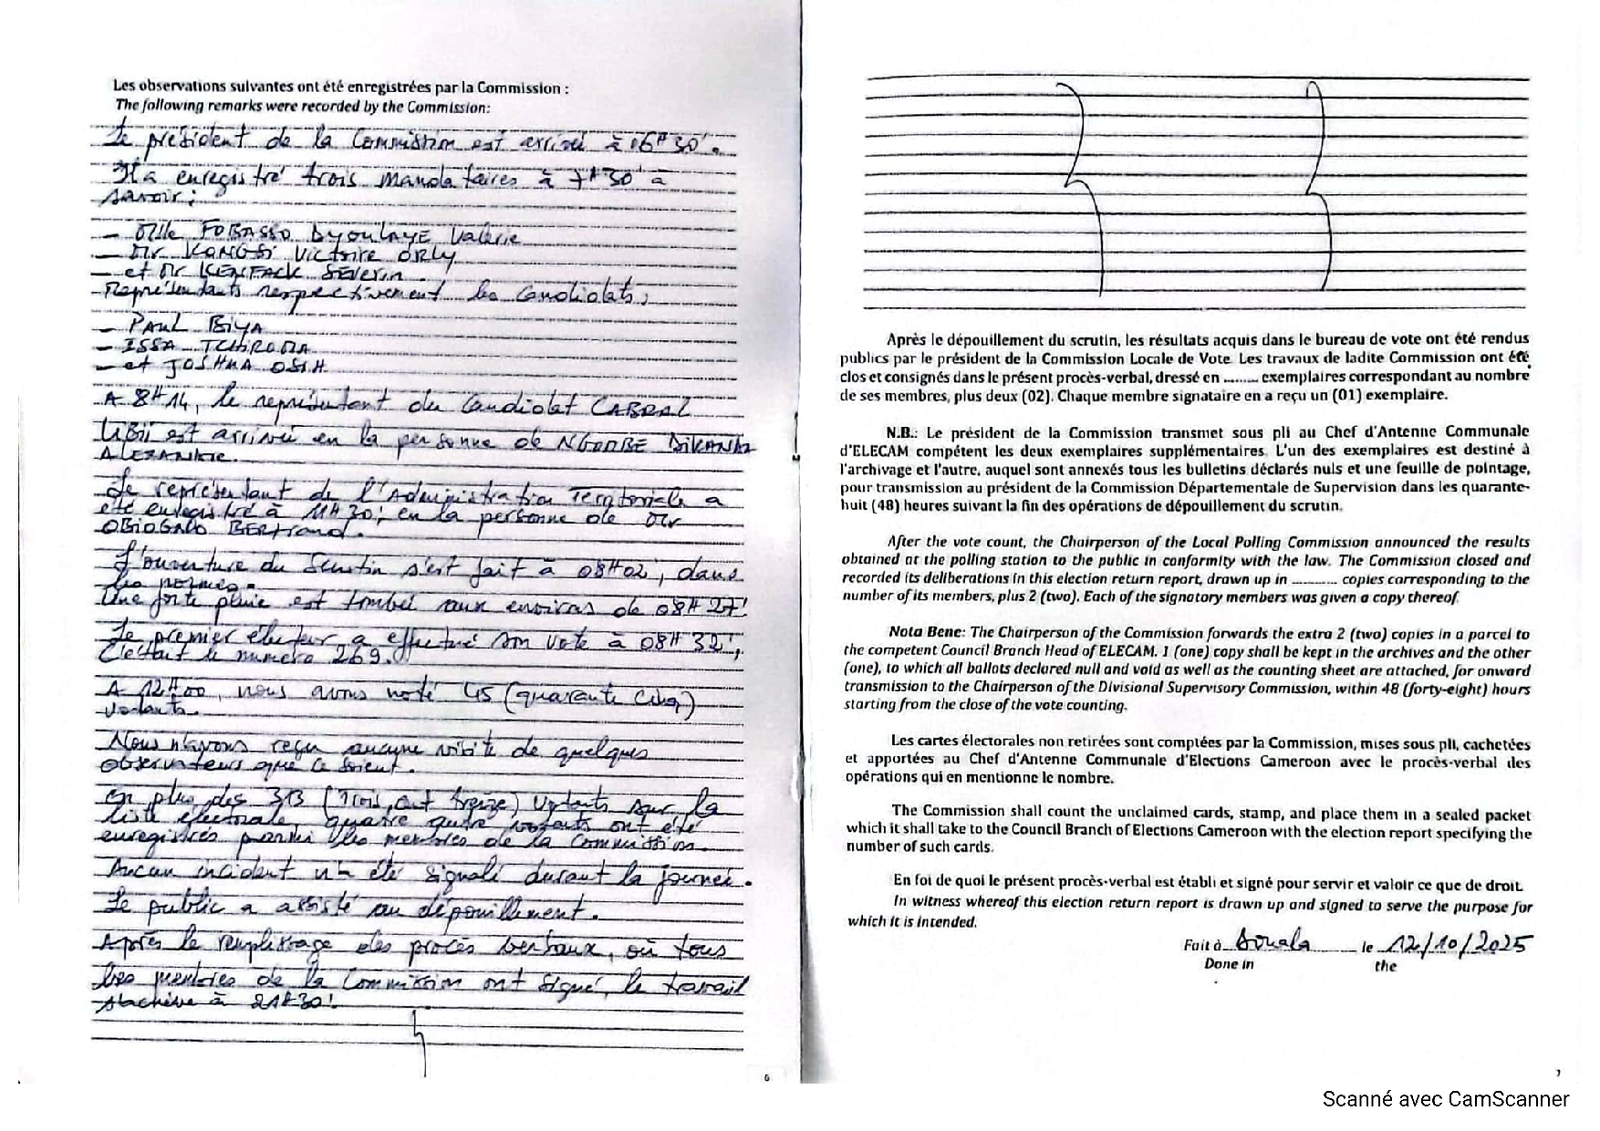 Les observations suivantes ont été enregistrées par la Commission :
The following remarks were recorded by the Commission:
Le président de la Commission est arrivé à 06H30'.
Il a enregistré trois mandataires à 7H30' à
savoir :
- Mlle FOBASSO Djoulaye Valérie
- Mr KONGSI Victoire ORLY
- et Mr KENFACK Séverin
Représentants respectivement les candidats :
- PAUL BIYA
- ISSA TCHIROMA
- et JOSHUA OSIH
A 8H14, le représentant du candidat CABRAL
LIBII est arrivé en la personne de NGOMBE DIKANDA
Le représentant de l'Administration Territoriale a
été enregistré à 11H30 ; en la personne de Mr
BERTrand.
L'ouverture du Scrutin s'est fait à 08H02, dans
les normes.
Une forte pluie est tombée aux environs de 08H27'
Le premier électeur a effectué son vote à 08H32',
C'était le numéro 269.
A 12H00, nous avons noté 45 (quarante cinq)
votants.
Nous n'avons reçu aucune visite de quelques
observateurs que ce soient.
En plus des 313 (Trois cent treize) votants sur la
liste électorale, quatre autre votants ont été
enregistrés parmi les membres de la Commission.
Aucun incident n'a été signalé durant la journée.
Le public a assisté au dépouillement.
Après le remplissage des procès verbaux, où tous
les membres de la Commission ont signé, le travail
s'achève à 21H30'.
6
Après le dépouillement du scrutin, les résultats acquis dans le bureau de vote ont été rendus
publics par le président de la Commission Locale de Vote. Les travaux de ladite Commission ont été
clos et consignés dans le présent procès-verbal, dressé en ......... exemplaires correspondant au nombre
de ses membres, plus deux (02). Chaque membre signataire en a reçu un (01) exemplaire.
N.B.: Le président de la Commission transmet sous pli au Chef d'Antenne Communale
d'ELECAM compétent les deux exemplaires supplémentaires. L'un des exemplaires est destiné à
l'archivage et l'autre, auquel sont annexés tous les bulletins déclarés nuls et une feuille de pointage,
pour transmission au président de la Commission Départementale de Supervision dans les quarante-
huit (48) heures suivant la fin des opérations de dépouillement du scrutin.
After the vote count, the Chairperson of the Local Polling Commission announced the results
obtained at the polling station to the public in conformity with the law. The Commission closed and
recorded its deliberations in this election return report, drawn up in ........... copies corresponding to the
number of its members, plus 2 (two). Each of the signatory members was given a copy thereof.
Nota Bene: The Chairperson of the Commission forwards the extra 2 (two) copies in a parcel to
the competent Council Branch Head of ELECAM. 1 (one) copy shall be kept in the archives and the other
(one), to which all ballots declared null and void as well as the counting sheet are attached, for onward
transmission to the Chairperson of the Divisional Supervisory Commission, within 48 (forty-eight) hours
starting from the close of the vote counting.
Les cartes électorales non retirées sont comptées par la Commission, mises sous pli, cachetées
et apportées au Chef d'Antenne Communale d'Elections Cameroon avec le procès-verbal des
opérations qui en mentionne le nombre.
The Commission shall count the unclaimed cards, stamp, and place them in a sealed packet
which it shall take to the Council Branch of Elections Cameroon with the election report specifying the
number of such cards.
En foi de quoi le présent procès-verbal est établi et signé pour servir et valoir ce que de droit.
In witness whereof this election return report is drawn up and signed to serve the purpose for
which it is intended.
Fait à Douala le 12/10/2025
Done in the
7
Scanné avec CamScanner